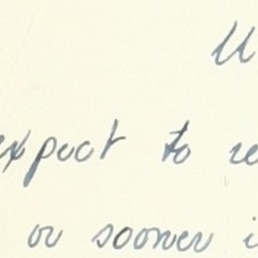 expect to
or sooner